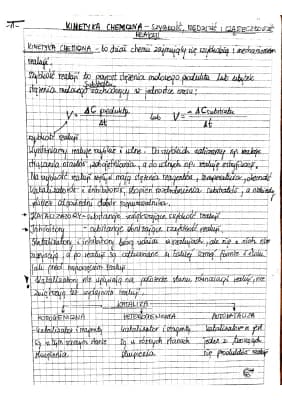 -11-
KINETYKA CHEMICZNA - SZYBKOŚĆ, RZĘDOWOŚĆ I CZĄSTECZKOWOŚĆ
REAKCJI
KINETYKA CHEMICZNA - to dział chemii zajmujący się szybkością i mechanizmem
reakcji.
Szybkość reakcji to przyrost stężenia molowego produktu lub ubytek
stężenia molowego substratu zachodzący w jednostce czasu:
V = ΔC produktu / Δt lub V = - ΔC substratu / Δt
szybkość reakcji
Wyróżniamy reakcje szybkie i wolne. Do szybkich zaliczamy np. reakcje
a do wolnych np. reakcje estryfikacji.
Na szybkość reakcji wpływ mają stężenia reagentów, temperatura, obecność
katalizatorów i inhibitorów, stopień rozdrobnienia substratów, a niekiedy
również odpowiedni dobór rozpuszczalnika.
KATALIZATORY - substancje zwiększające szybkość reakcji
Inhibitory - substancje obniżające szybkość reakcji.
Katalizatory i inhibitory biorą udział w reakcjach, ale się w nich nie
zużywają, a po reakcji są odtwarzane w takiej samej formie i ilości
jak przed rozpoczęciem reakcji.
Katalizatory nie wpływają na położenie stanu równowagi reakcji, nie
zwiększają też wydajności reakcji.
KATALIZA
HOMOGENICZNA HETEROGENICZNA AUTOKATALIZA
katalizator i reagenty katalizator i reagenty katalizatorem jest
są w tym samym stanie są w różnych stanach jeden z tworzących
skupienia. skupienia. się produktów reakcji